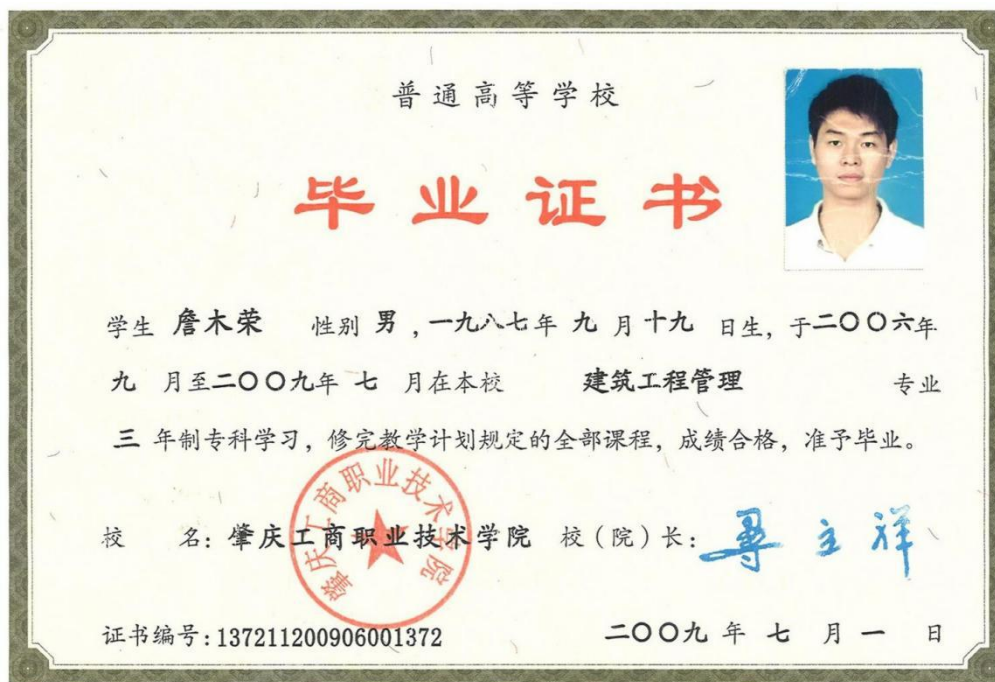 普通高等学校
毕业证书
学生 詹木荣 性别 男，一九八七年 九 月 十九 日生，于二〇〇六年
九 月至二〇〇九年 七 月在本校 建筑工程管理 专业
三 年制专科学习，修完教学计划规定的全部课程，成绩合格，准予毕业。
肇庆工商职业技术学院
校 名：肇庆工商职业技术学院 校（院）长：
证书编号：137211200906001372 二〇〇九 年 七 月 一 日